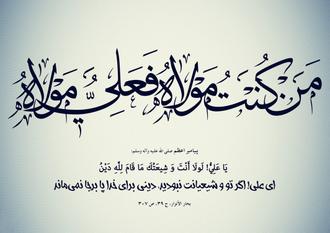 مَن كُنتُ مَولاهُ فَعَلِيٌّ مَولاهُ
پیامبر اعظم صلی الله علیه وآله وسلم:
یَا عَلِیُّ! لَولَا أَنْتَ وَ شِیعَتُكَ مَا قَامَ لِلّهِ دَیْنٌ
ای علی! اگر تو و شیعیانت نبودید، دینی برای خدا پا برجا نمی‌ماند
بحار الأنوار، ج ۳۹، ص ۳۰۷